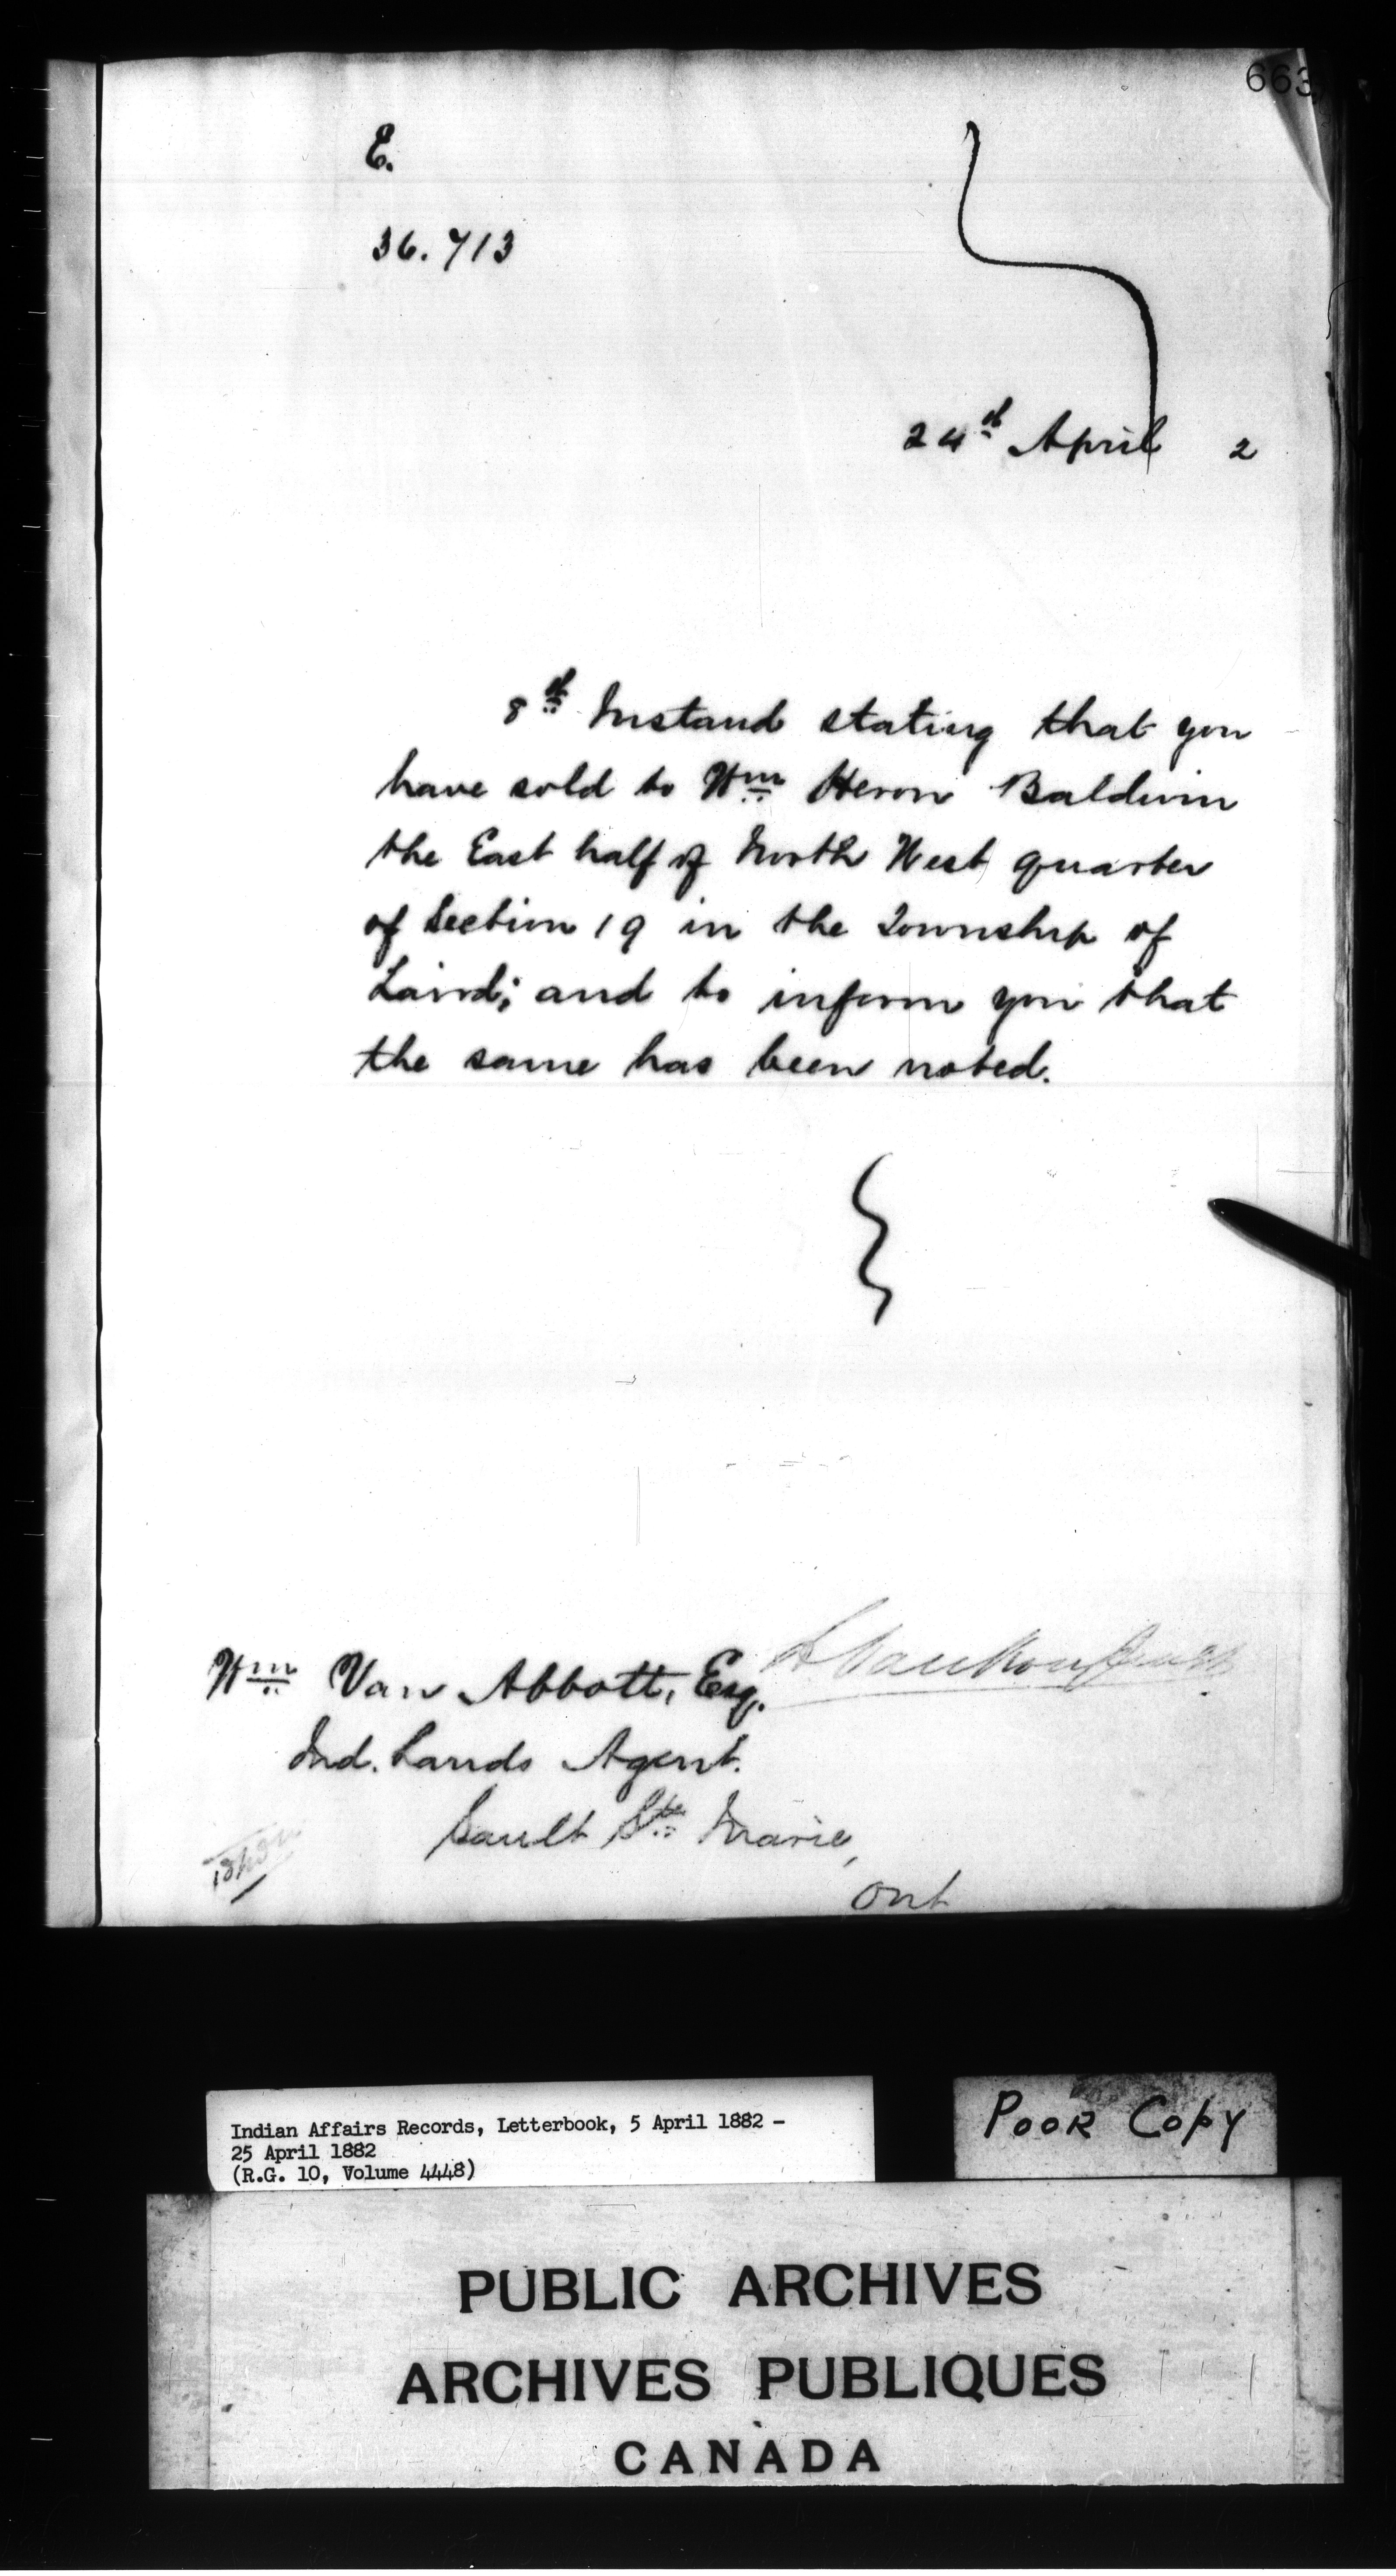 663
E.
36.713
24th April 2
8th Instand stating that you
have sold to Wm Heron Baldwin
the East half of North West quarter
of Section 19 in the Township of
Laird; and to inform you that
the same has been noted.
L Vankoughnet
Wm Van Abbott, Esq.
Ind. Lands Agent.
Sault Ste Marie,
Ont
Indian Affairs Records, Letterbook, 5 April 1882 -
25 April 1882
(R.G. 10, Volume 4448)
POOR COPY
PUBLIC ARCHIVES
ARCHIVES PUBLIQUES
CANADA